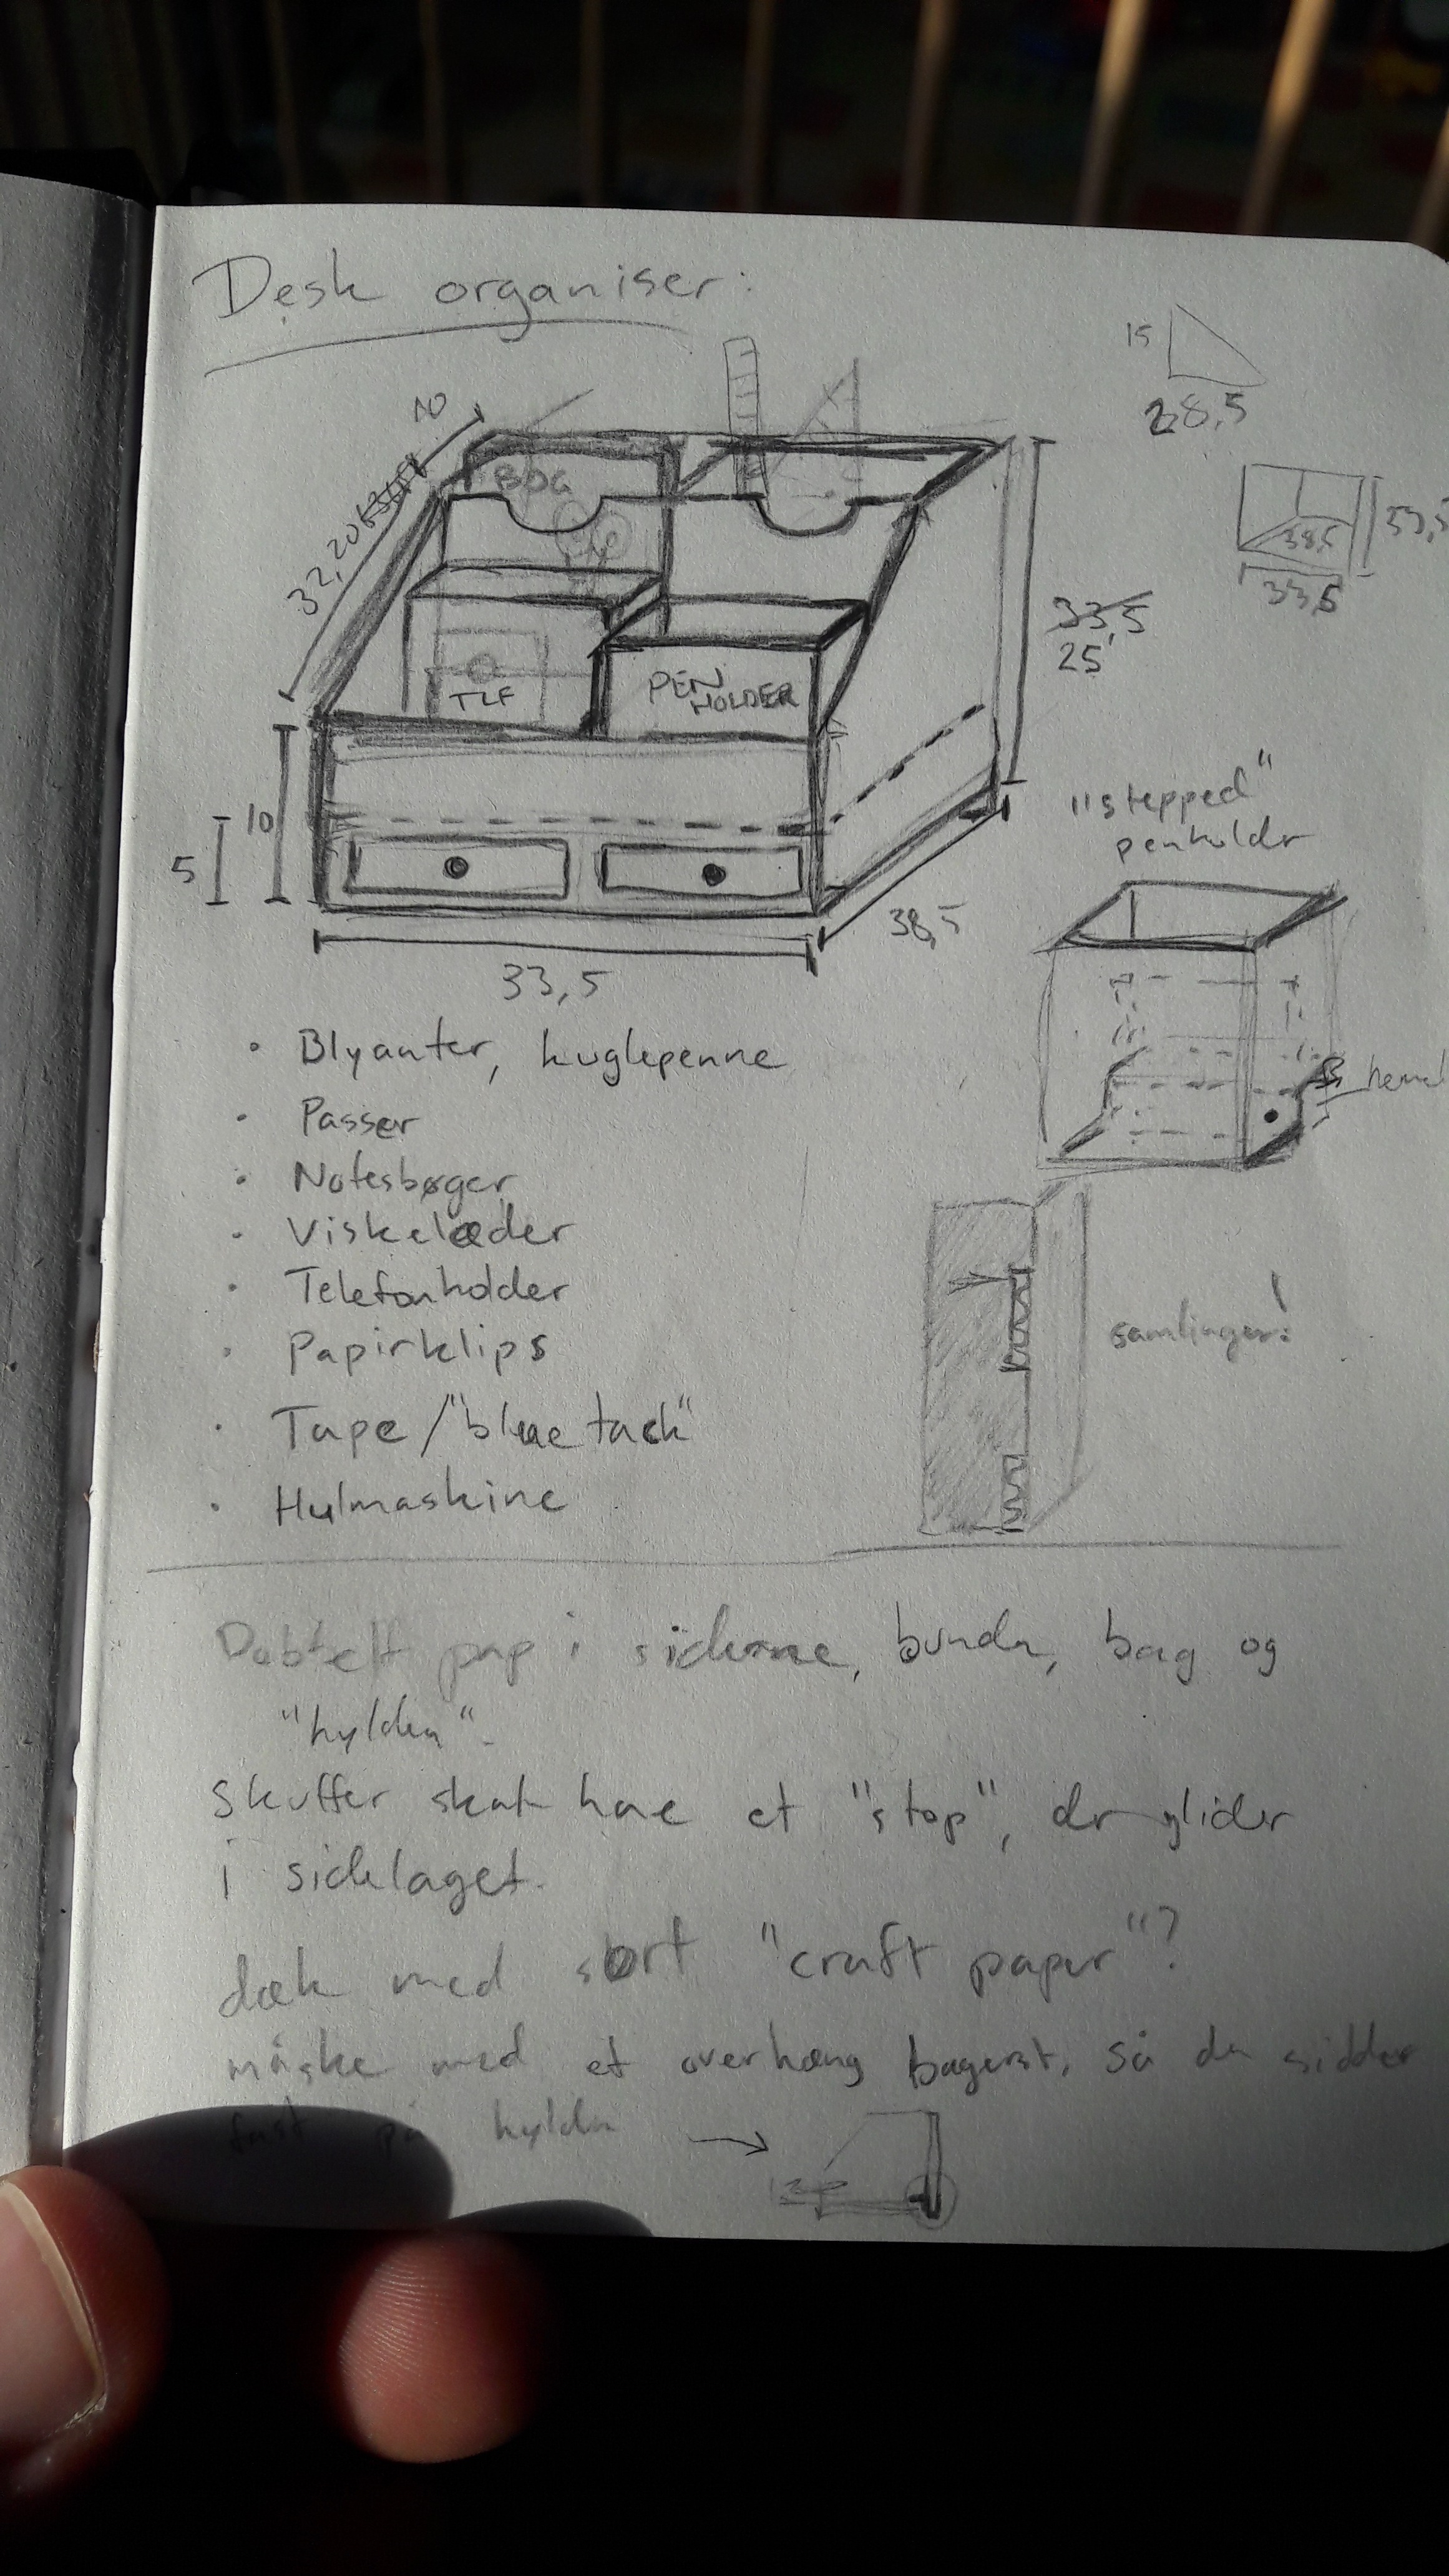 Desk organiser:
10
32,20
BØG
TLF
PEN HOLDER
10
5
33,5
38,5
33,5
25,
28,5
15
38,5
33,5
33,5
"stepped"
penholder
• Blyanter, kuglepenne
• Passer
• Notesbøger
• Viskelæder
• Telefonholder
• Papirklips
• Tape/"blue tack"
• Hulmaskine
samlinger:
Dobbelt pap i siderne, bunden, bag og
"hylden".
Skuffer skal have et "stop", der glider
i sidelaget.
dæk med sort "craft paper"?
måske med et overhæng bagerst, så den sidder
fast på hylden →